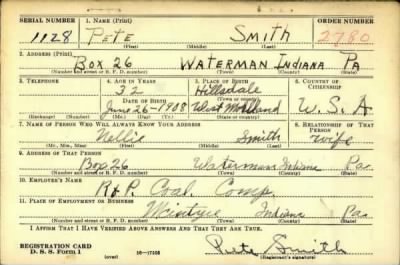 SERIAL NUMBER 1. NAME (Print) ORDER NUMBER
1128 PETE SMITH 2780
(First) (Middle) (Last)
2. ADDRESS (Print)
BOX 26 WATERMAN INDIANA PA
(Number and street or R. F. D. number) (Town) (County) (State)
3. TELEPHONE 4. AGE IN YEARS 5. PLACE OF BIRTH 6. COUNTRY OF CITIZENSHIP
32 Hillsdale
DATE OF BIRTH (Town or county)
June-26-1908 West Moreland U.S.A
(Exchange) (Number) (Mo.) (Day) (Yr.) (State or country)
7. NAME OF PERSON WHO WILL ALWAYS KNOW YOUR ADDRESS 8. RELATIONSHIP OF THAT PERSON
Nellie Smith Wife
(Mr., Mrs., Miss) (First) (Middle) (Last)
9. ADDRESS OF THAT PERSON
Box 26 Waterman Indiana Pa
(Number and street or R. F. D. number) (Town) (County) (State)
10. EMPLOYER'S NAME
R & P. Coal. Comp.
11. PLACE OF EMPLOYMENT OR BUSINESS
McIntyre Indiana Pa
(Number and street or R. F. D. number) (Town) (County) (State)
I AFFIRM THAT I HAVE VERIFIED ABOVE ANSWERS AND THAT THEY ARE TRUE.
REGISTRATION CARD
D. S. S. Form 1 (over) 16-17105 Pete Smith
(Registrant's signature)